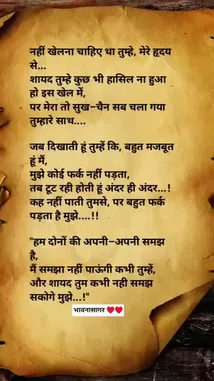 नहीं खेलना चाहिए था तुम्हे, मेरे हृदय
से...
शायद तुम्हे कुछ भी हासिल ना हुआ
हो इस खेल में,
पर मेरा तो सुख-चैन सब चला गया
तुम्हारे साथ....
जब दिखाती हूं तुम्हें कि, बहुत मजबूत
हूं मैं,
मुझे कोई फर्क नहीं पड़ता,
तब टूट रही होती हूं अंदर ही अंदर...!
कह नहीं पाती तुमसे, पर बहुत फर्क
पड़ता है मुझे....!!
"हम दोनों की अपनी-अपनी समझ
है,
मैं समझा नहीं पाऊंगी कभी तुम्हें,
और शायद तुम कभी नही समझ
सकोगे मुझे...!"
भावनासागर ♥️♥️